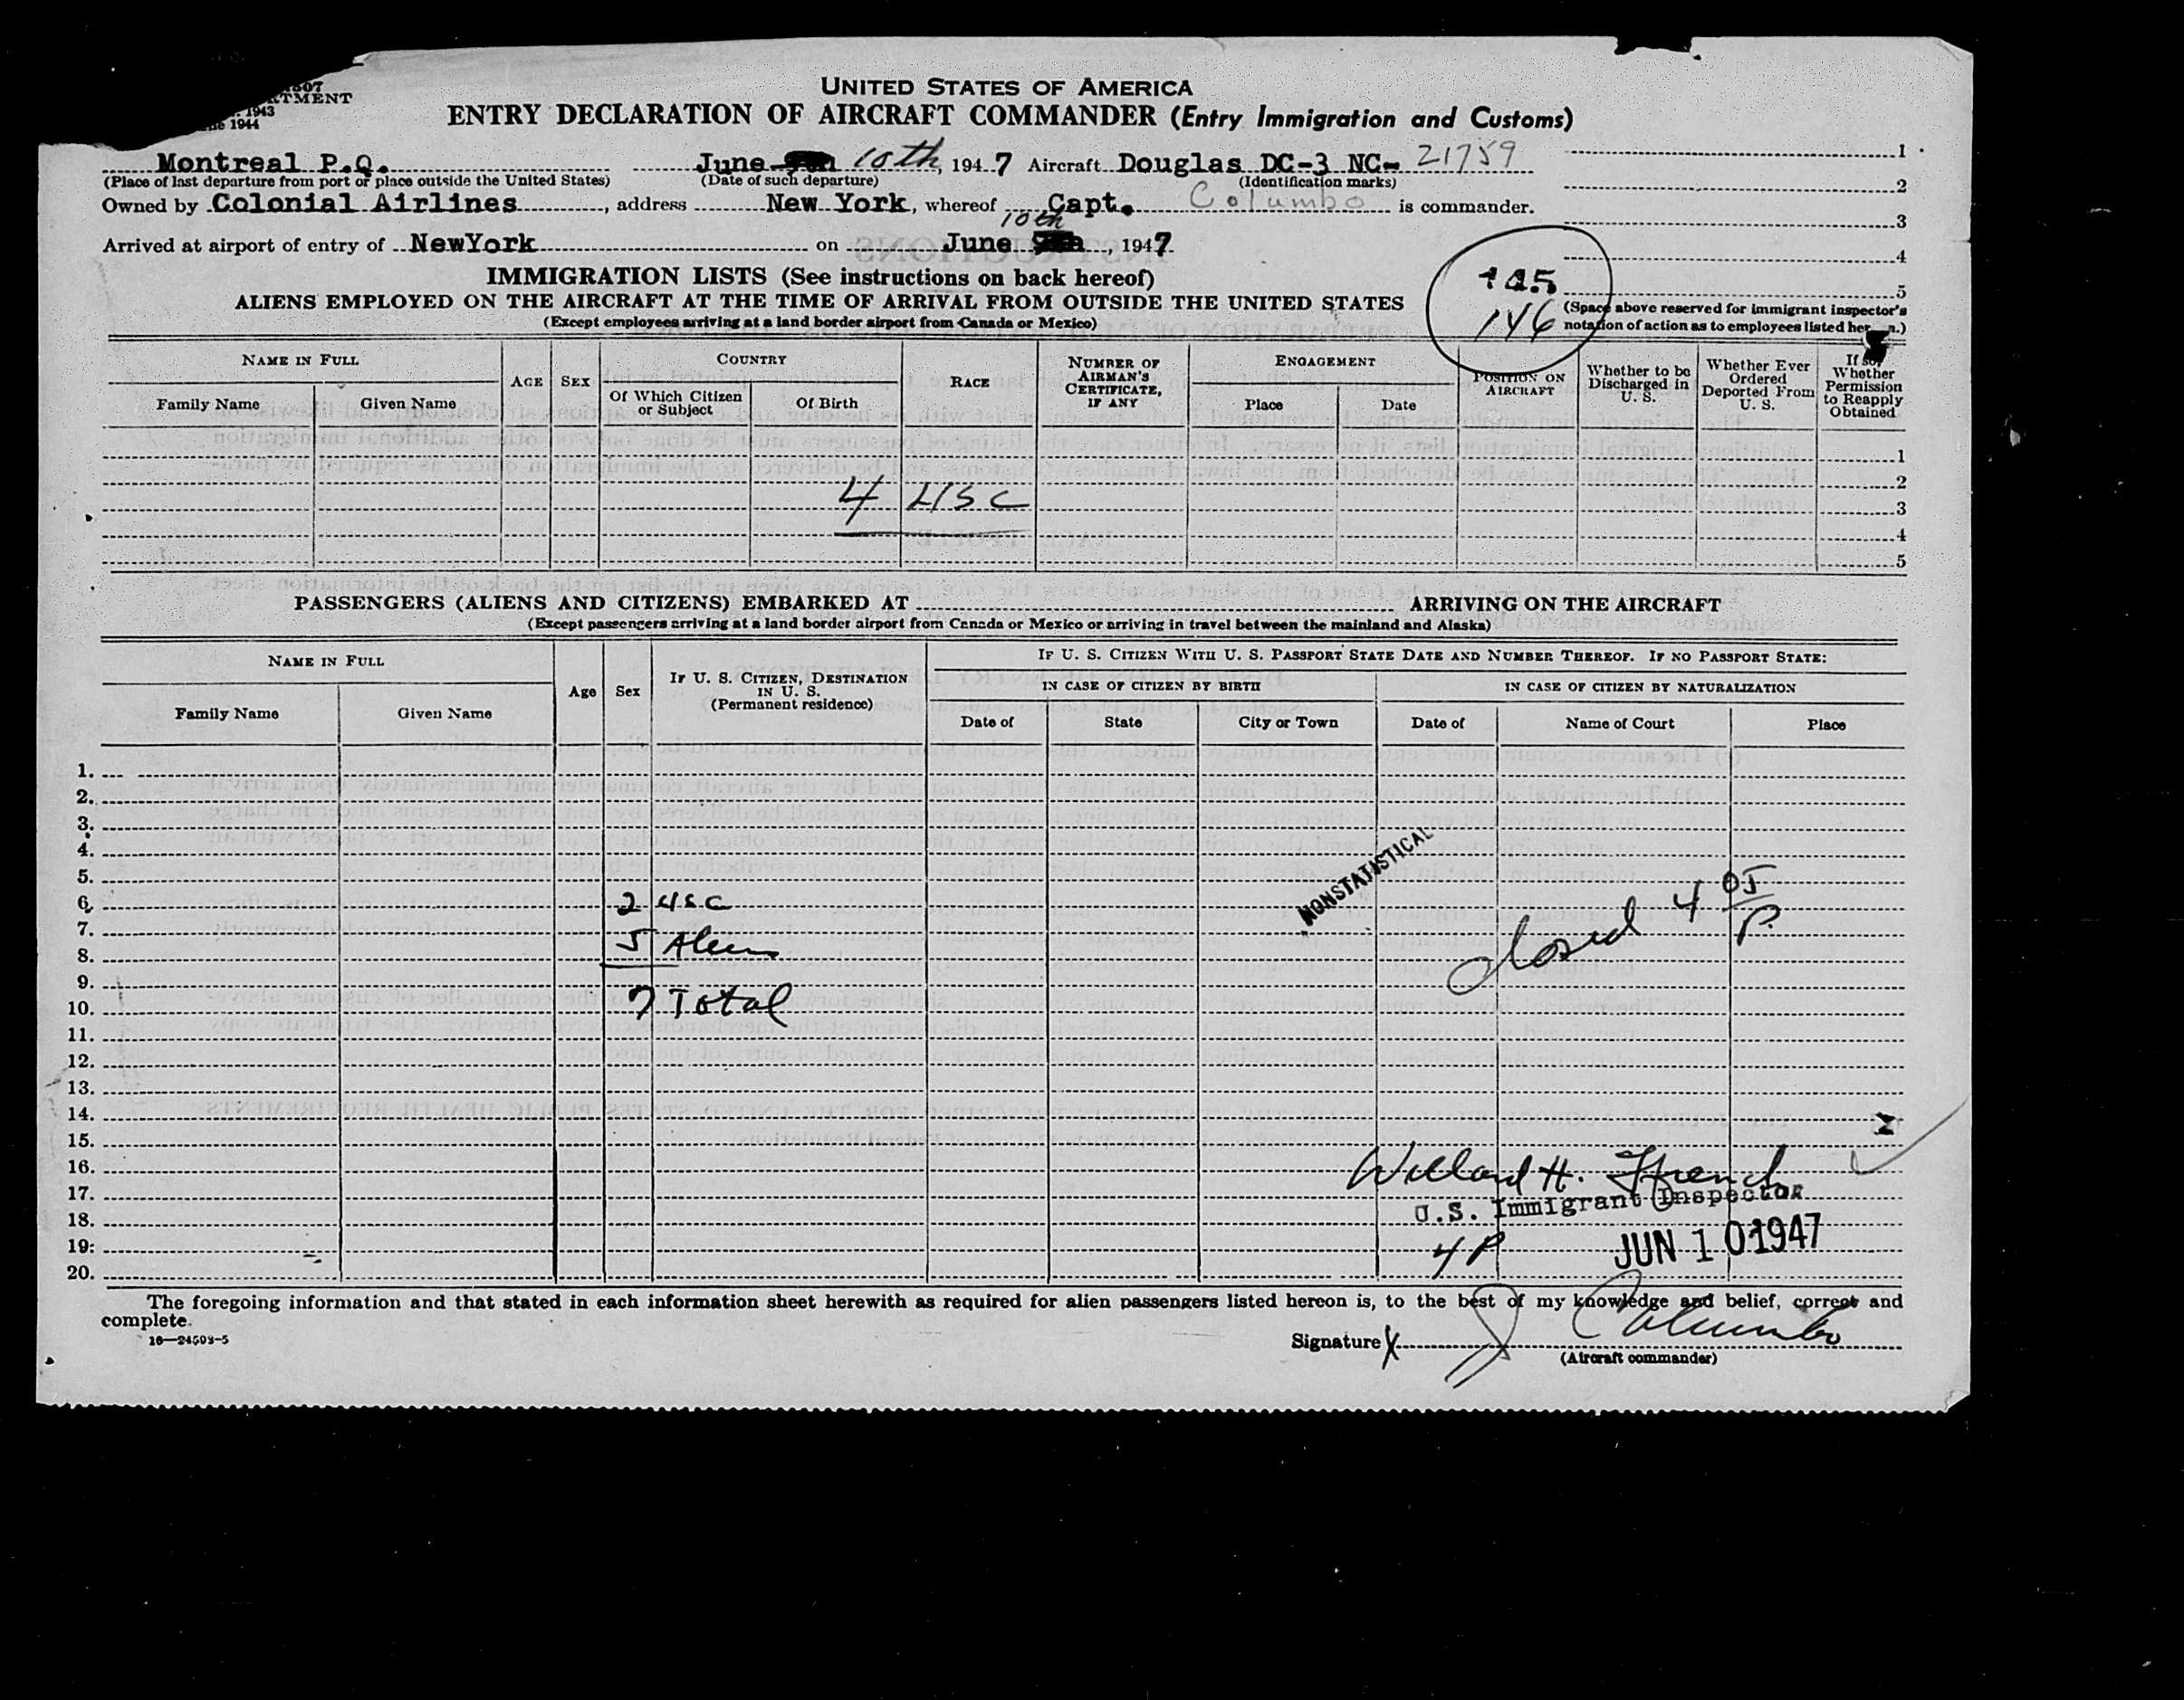 1507
RTMENT
1943
ne 1944
UNITED STATES OF AMERICA
ENTRY DECLARATION OF AIRCRAFT COMMANDER (Entry Immigration and Customs)
Montreal P.Q. June 10th, 1947 Aircraft Douglas DC-3 NC- 21759
(Place of last departure from port or place outside the United States) (Date of such departure) (Identification marks)
Owned by Colonial Airlines, address New York, whereof Capt. Columbo is commander.
10th
Arrived at airport of entry of NewYork on June, 1947
1
2
3
4
5
(Space above reserved for immigrant inspector's
notation of action as to employees listed her n.)
146
IMMIGRATION LISTS (See instructions on back hereof)
ALIENS EMPLOYED ON THE AIRCRAFT AT THE TIME OF ARRIVAL FROM OUTSIDE THE UNITED STATES
(Except employees arriving at a land border airport from Canada or Mexico)
NAME IN FULL
Family Name
Given Name
AGE
SEX
COUNTRY
Of Which Citizen
or Subject
Of Birth
RACE
NUMBER OF
AIRMAN'S
CERTIFICATE,
IF ANY
ENGAGEMENT
Place
Date
POSITION ON
AIRCRAFT
Whether to be
Discharged in
U. S.
Whether Ever
Ordered
Deported From
U. S.
If so,
Whether
Permission
to Reapply
Obtained
1
2
4 USC
3
4
5
PASSENGERS (ALIENS AND CITIZENS) EMBARKED AT ARRIVING ON THE AIRCRAFT
(Except passengers arriving at a land border airport from Canada or Mexico or arriving in travel between the mainland and Alaska)
NAME IN FULL
Family Name
Given Name
Age
Sex
IF U. S. CITIZEN, DESTINATION
IN U. S.
(Permanent residence)
IF U. S. CITIZEN WITH U. S. PASSPORT STATE DATE AND NUMBER THEREOF. IF NO PASSPORT STATE:
IN CASE OF CITIZEN BY BIRTH
Date of
State
City or Town
IN CASE OF CITIZEN BY NATURALIZATION
Date of
Name of Court
Place
1.
2.
3.
4.
5.
6. 2 USC
7.
8. 5 Aliens
9.
10. 7 Total
11.
12.
13.
14.
15.
16.
17.
18.
19.
20.
NONSTATISTICAL
closed 4 05
P
Willard H. Ffrench
U.S. Immigrant Inspector
4 P
JUN 10 1947
The foregoing information and that stated in each information sheet herewith as required for alien passengers listed hereon is, to the best of my knowledge and belief, correct and
complete.
16—24503-5
Signature X Columbo
(Aircraft commander)